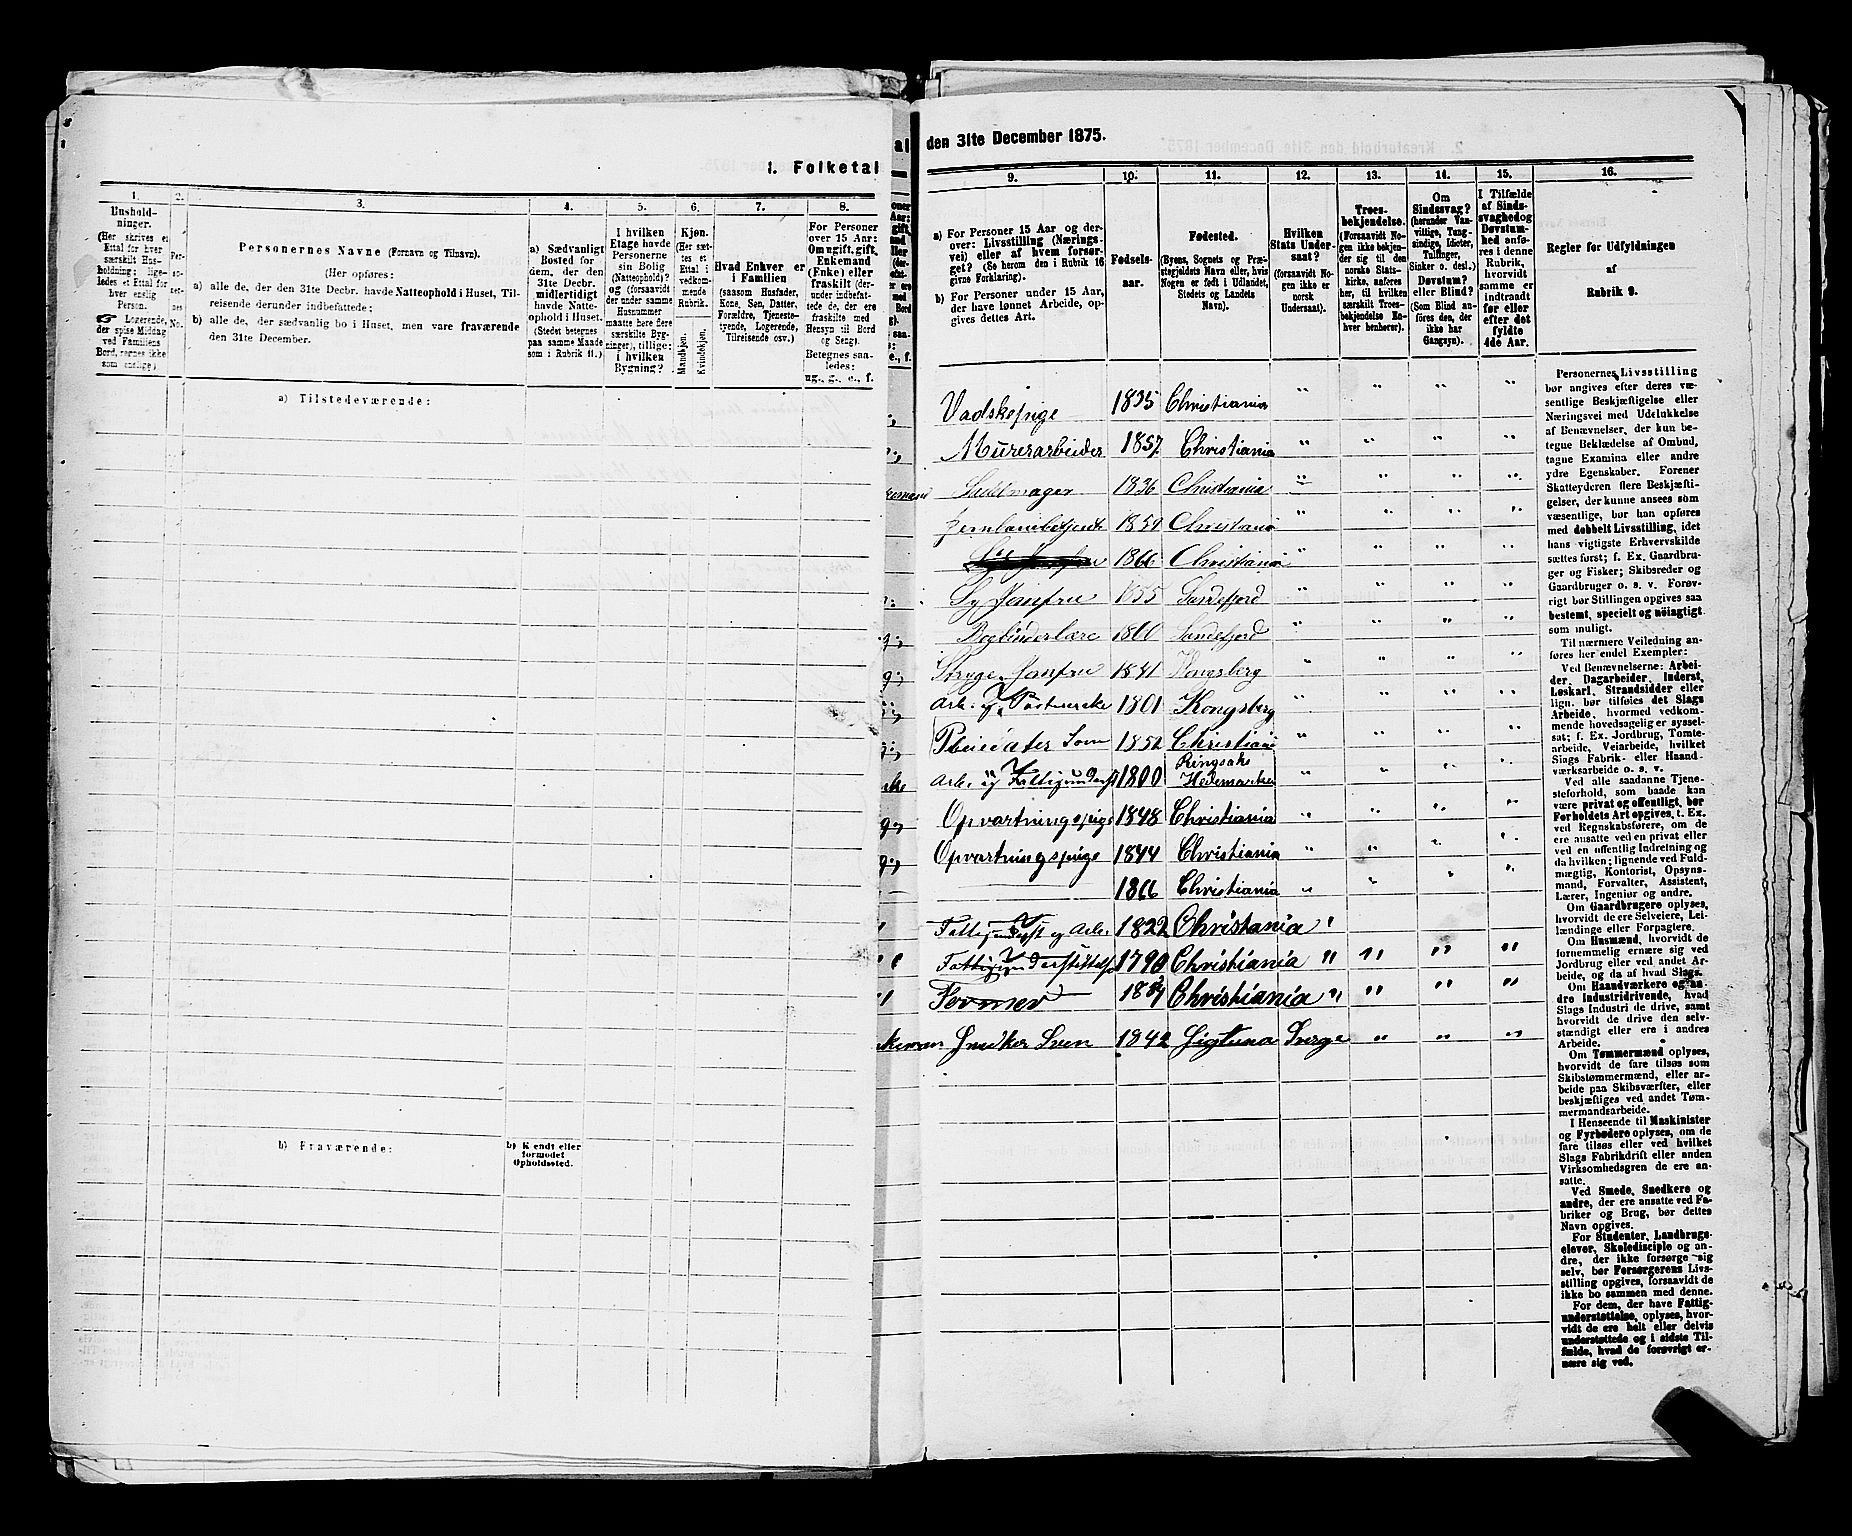 1. Folketal
1.
2.
3.
4.
5.
6.
7.
8.
Hushold-
ninger.
(Her skrives et
Ettal for hver
særskilt Hus-
holdning; lige-
ledes et Ettal for
hver enslig
Person.
☞ Logerende,
der spise Middag
ved Familiens
Bord, regnes ikke
som enslige)
Per-
so-
ner-
nes
No.
Personernes Navne (Fornavn og Tilnavn).
(Her opføres:
a) alle de, der den 31te Decbr. havde Natteophold i Huset, Til-
reisende derunder indbefattede;
b) alle de, der sædvanlig bo i Huset, men vare fraværende
den 31te December.
a) Sædvanligt
Bosted for
dem, der den
31te Decbr.
midlertidigt
havde Natte-
ophold i Huset.
(Stedet betegnes
paa samme Maade
som i Rubrik 11.)
I hvilken
Etage havde
Personerne
sin Bolig
(Natteophold)?
og (forsaavidt
der under samme
Husnummer
maatte høre flere
særskilte Byg-
ninger), tillige:
i hvilken
Bygning?
Kjøn.
(Her sæt-
tes et
Ettal i
vedkom-
mende
Rubrik.
Mandkjøn.
Kvindekjøn.
Hvad Enhver er
i Familien
(saasom Husfader,
Kone, Søn, Datter,
Forældre, Tjeneste-
tyende, Logerende,
Tilreisende osv.)
For Personer
over 15 Aar:
Om ugift, gift,
Enkemand
(Enke) eller
fraskilt (der-
under indbefat-
tede de, der ere
fraskilte med
Hensyn til Bord
og Seng).
Betegnes saa-
ledes:
ug., g., e., f.
a) Tilstedeværende:
b) Fraværende:
b) Kjendt eller
formodet
Opholdssted.
den 31te December 1875.
9.
10.
11.
12.
13.
14.
15.
16.
a) For Personer 15 Aar og der-
over: Livsstilling (Nærings-
vei) eller af hvem forsør-
get? (Se herom den i Rubrik 16
givne Forklaring).
b) For Personer under 15 Aar,
der have lønnet Arbeide, op-
gives dettes Art.
Fødsels-
aar.
Fødested.
(Byens, Sognets og Præ-
stegjeldets Navn eller, hvis
Nogen er født i Udlandet,
Stedets og Landets
Navn).
Hvilken
Stats Under-
saat?
(forsaavidt No-
gen ikke er
norsk
Undersaat).
Troes-
bekjendelse.
(Forsaavidt No-
gen ikke bekjen-
der sig til den
norske Stats-
kirke, anføres
her, til hvilken
særskilt Troes-
bekjendelse En-
hver henhører).
Om
Sindssvag?
(herunder Van-
vittige, Tung-
sindige, Idioter,
Tullinger,
Sinker o. desl.)
Døvstum?
eller Blind?
(Som Blind an-
føres den, der
ikke har
Gangsyn).
I Tilfælde
af Sinds-
svaghed og
Døvstum-
hed anfø-
res i denne
Rubrik,
hvorvidt
samme er
indtraadt
før eller
efter det
fyldte
4de Aar.
Regler for Udfyldningen
af
Rubrik 9.
Vadskepige 1835 Christiania " " " "
Murerarbeider 1857 Christiania " " " "
Sadelmager 1836 Christiania " " " "
Jernbanebetjent 1850 Christiania " " " "
1866 Christiania " " " "
Sy Jomfru 1855 Sandefjord " " " "
Bogbinderlære 1860 Sandefjord " " " "
Stryge Jomfru 1841 Kongsberg " " " "
1801 Kongsberg " " " "
Søn 1852 Christiania " " " "
1800 Ringsaker Hedemarken " " " "
Opvartningspige 1848 Christiania " " " "
Opvartningspige 1844 Christiania " " " "
1866 Christiania " " " "
Fattigunderst og Arb. 1822 Christania "
Fattigunderstøttelse 1790 Christiania " " " "
Former Christiania " " " "
Snedker Sven 1842 Sigtuna Sverge " " "
Personernes Livsstilling
bør angives efter deres væ-
sentlige Beskjæftigelse eller
Næringsvei med Udelukkelse
af Benævnelser, der kun be-
tegne Beklædelse af Ombud,
tagne Examina eller andre
ydre Egenskaber. Forener
Skatteyderen flere Beskjæfti-
gelser, der kunne ansees som
væsentlige, bør han opføres
med dobbelt Livsstilling, idet
hans vigtigste Erhvervskilde
sættes først; f. Ex. Gaardbru-
ger og Fisker; Skibsreder og
Gaardbruger o. s. v. Forøv-
rigt bør Stillingen opgives saa
bestemt, specielt og nøiagtigt
som muligt.
Til nærmere Veiledning an-
føres her endel Exempler:
Ved Benævnelserne: Arbei-
der, Dagarbeider, Inderst,
Løskarl, Strandsidder eller
lign. bør tilføies det Slags
Arbeide, hvormed vedkom-
mende hovedsagelig er syssel-
sat; f. Ex. Jordbrug, Tomte-
arbeide, Veiarbeide, hvilket
Slags Fabrik- eller Haand-
værksarbeide o. s. v.
Ved alle saadanne Tjene-
steforhold, som baade kan
være privat og offentligt, bør
Forholdets Art opgives, t. Ex.
ved Regnskabsførere, om de
ere ansatte ved en privat eller
ved en offentlig Indretning og
da hvilken; lignende ved Fuld-
mægtig, Kontorist, Opsyns-
mand, Forvalter, Assistent,
Lærer, Ingeniør og andre.
Om Gaardbrugere oplyses,
hvorvidt de ere Selveiere, Lei-
lændinge eller Forpagtere.
Om Husmænd, hvorvidt de
fornemmelig ernære sig ved
Jordbrug eller ved andet Ar-
beide, og da af hvad Slags.
Om Haandværkere og an-
dre Industridrivende, hvad
Slags Industri de drive, samt
hvorvidt de drive den selv-
stændigt eller ere i andres
Arbeide.
Om Tømmermænd oplyses,
hvorvidt de fare tilsøs som
Skibstømmermænd, eller ar-
beide paa Skibsværfter, eller
beskjæftiges ved andet Tøm-
mermandsarbeide.
I Henseende til Maskinister
og Fyrbødere oplyses, om de
fare tilsøs eller ved hvilket
Slags Fabrikdrift eller anden
Virksomhedsgren de ere an-
satte.
Ved Smede, Snedkere og
andre, der ere ansatte ved Fa-
briker og Brug, bør dettes
Navn opgives.
For Studenter, Landbrugs-
elever, Skoledisciple og an-
dre, der ikke forsørge sig
selv, bør Forsørgerens Livs-
stilling opgives, forsaavidt de
ikke bo sammen med denne.
For dem, der have Fattig-
understøttelse, oplyses, hvor-
vidt de ere helt eller delvis
understøttede og i sidste Til-
fælde, hvad de forøvrigt er-
nære sig ved.